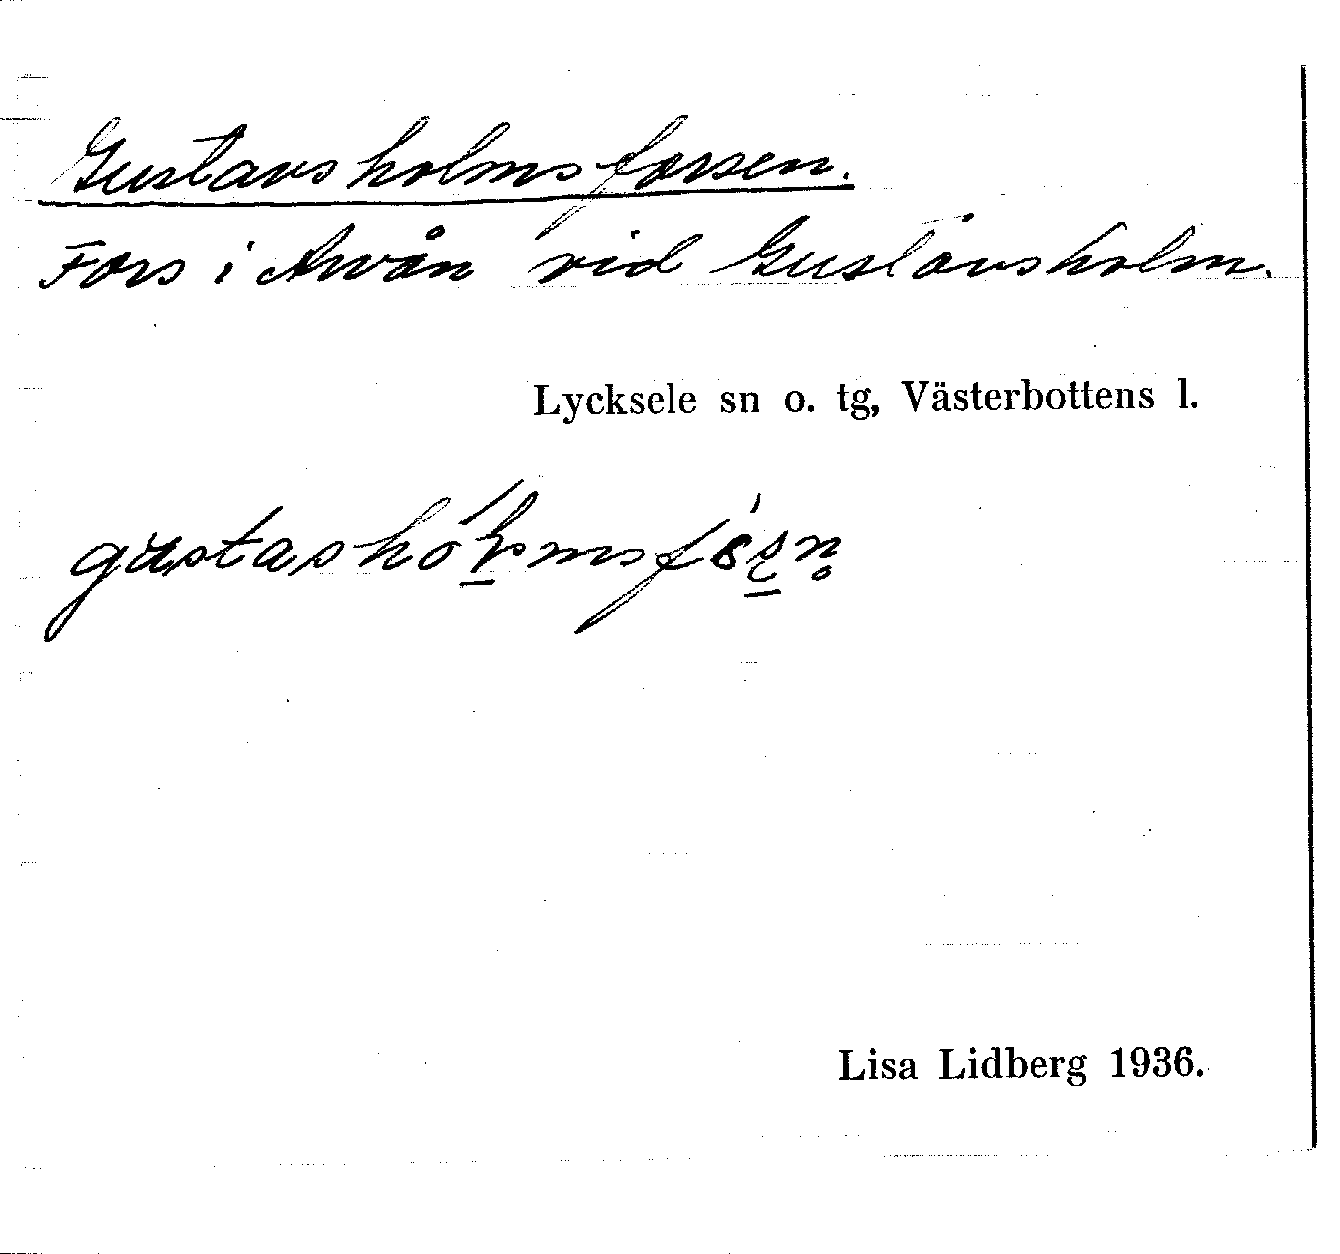 Gustavsholmsforsen.
Fors i Arvån vid Gustavsholm.
Lycksele sn o. tg, Västerbottens l.
Lisa Lidberg 1936.